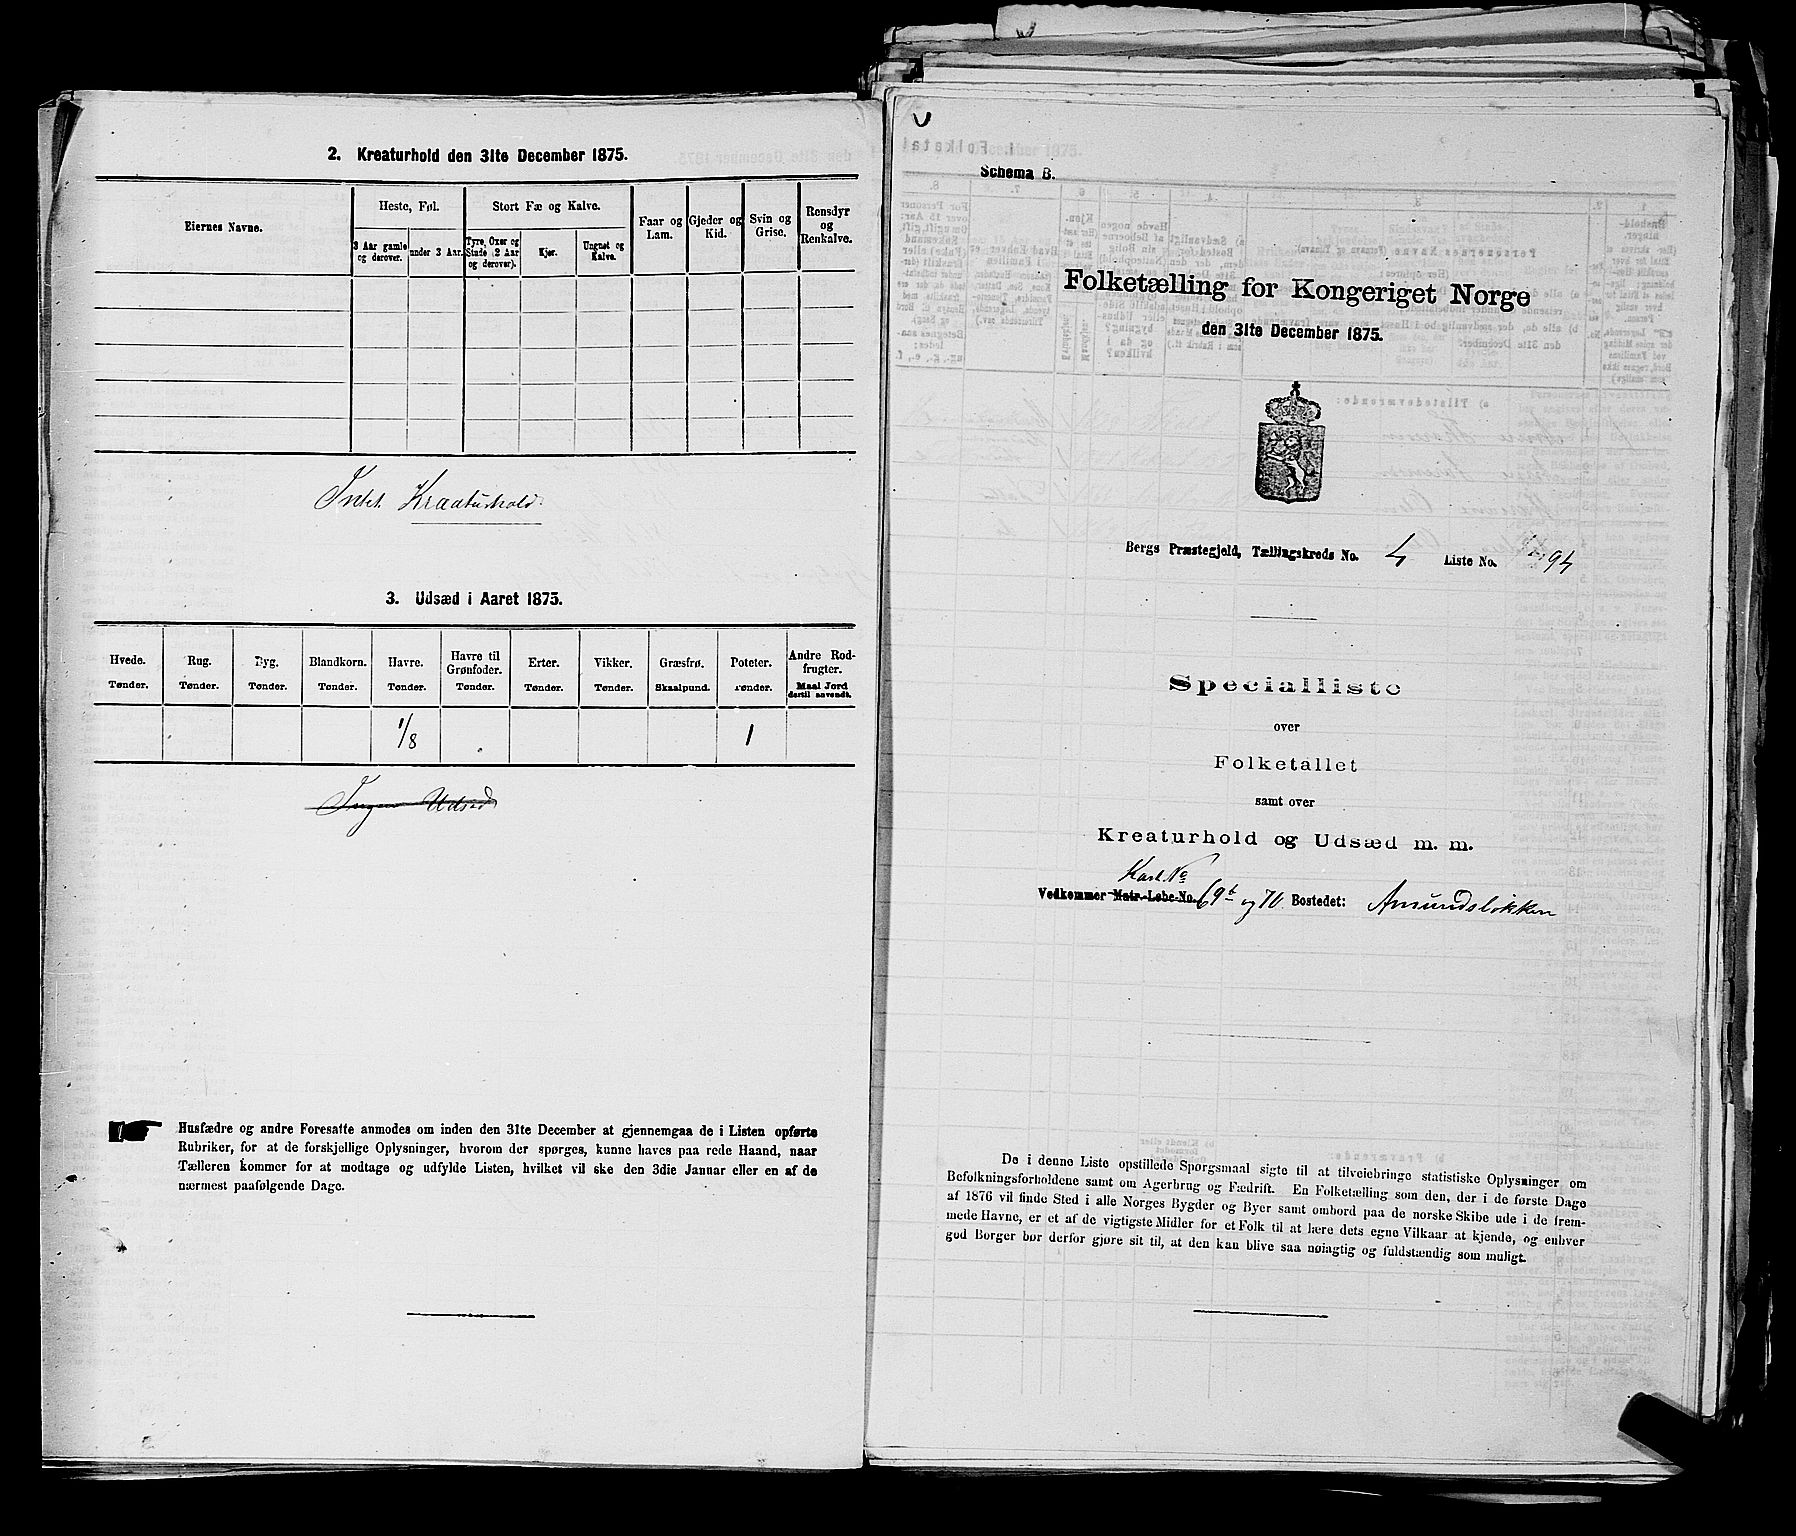 2. Kreaturhold den 31te December 1875.
Eiernes Navne.
Heste, Føl.
Stort Fæ og Kalve.
Faar og Lam.
Gjeder og Kid.
Svin og Grise.
Rensdyr og Renkalve.
3 Aar gamle og derover.
under 3 Aar.
Tyre, Oxer og Stude (2 Aar og derover).
Kjør.
Ungnøt og Kalve.
Intet Kraaturhold.
3. Udsæd i Aaret 1875.
Hvede. Rug. Byg. Blandkorn. Havre. Havre til Grønfoder. Erter. Vikker. Græsfrø. Poteter. Andre Rodfrugter.
Tønder. Tønder. Tønder. Tønder. Tønder. Tønder. Tønder. Tønder. Skaalpund. Tønder. Maal Jord dertil anvendt.
1/8 1
Ingen Udsæd
Husfædre og andre Foresatte anmodes om inden den 31te December at gjennemgaa de i Listen opførte
Rubriker, for at de forskjellige Oplysninger, hvorom der spørges, kunne haves paa rede Haand, naar
Tælleren kommer for at modtage og udfylde Listen, hvilket vil ske den 3die Januar eller en af de
nærmest paafølgende Dage.
Schema B.
Folketælling for Kongeriget Norge
den 31te December 1875.
Bergs Præstegjeld, Tællingskreds No. 4 Liste No. 94
Specialliste
over
Folketallet
samt over
Kreaturhold og Udsæd m. m.
Kart No
Vedkommer Matr.-Løbe-No. 69b og 70 Bostedet: Amundsløkken
De i denne Liste opstillede Spørgsmaal sigte til at tilveiebringe statistiske Oplysninger om
Befolkningsforholdene samt om Agerbrug og Fædrift. En Folketælling som den, der i de første Dage
af 1876 vil finde Sted i alle Norges Bygder og Byer samt ombord paa de norske Skibe ude i de frem-
mede Havne, er et af de vigtigste Midler for et Folk til at lære dets egne Vilkaar at kjende, og enhver
god Borger bør derfor gjøre sit til, at den kan blive saa nøiagtig og fuldstændig som muligt.